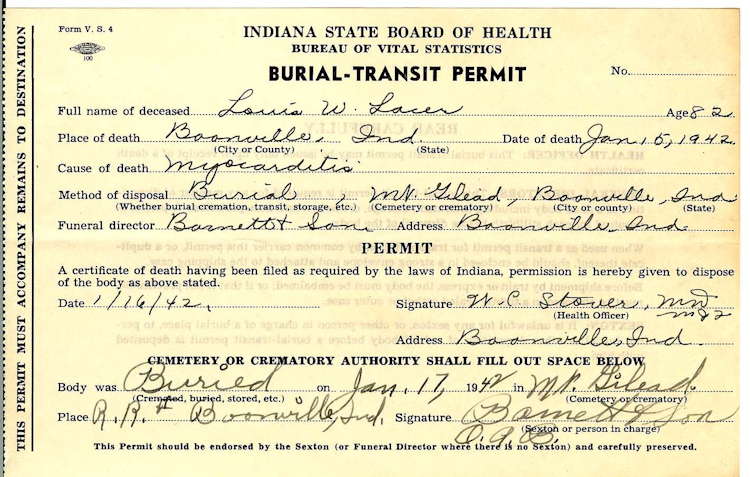 Form V. S. 4
100
INDIANA STATE BOARD OF HEALTH
BUREAU OF VITAL STATISTICS
BURIAL-TRANSIT PERMIT
No.
Full name of deceased Louis W. Lacer Age 82
Place of death Boonville, Ind. Date of death Jan 15, 1942.
(City or County) (State)
Cause of death Myocarditis
Method of disposal Burial, Mt. Gilead, Boonville, Ind
(Whether burial cremation, transit, storage, etc.) (Cemetery or crematory) (City or county) (State)
Funeral director Barnett & Son Address Boonville, Ind.
PERMIT
A certificate of death having been filed as required by the laws of Indiana, permission is hereby given to dispose
of the body as above stated.
Date 1/16/42. Signature W. C. Stover, MD
(Health Officer)
Address Boonville, Ind.
CEMETERY OR CREMATORY AUTHORITY SHALL FILL OUT SPACE BELOW
Body was Buried on Jan. 17, 1942 in Mt. Gilead.
(Cremated, buried, stored, etc.) (Cemetery or crematory)
Place R.R. Boonville, Ind. Signature Barnett & Son
(Sexton or person in charge)
This Permit should be endorsed by the Sexton (or Funeral Director where there is no Sexton) and carefully preserved.
THIS PERMIT MUST ACCOMPANY REMAINS TO DESTINATION